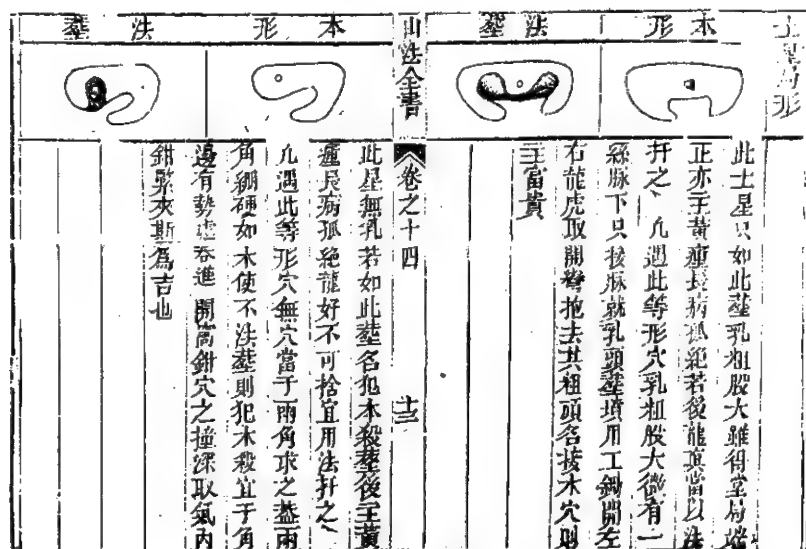 土星局形
本形
法塟
此土星只如此塟乳粗股大雖得堂局端
正亦主黃瘇長病孤絕若後龍真當以法
扦之凡遇此等形穴乳粗股大微有一
絲脉下只接脉就乳頭塟墳用工鋤開左
右龍虎取開彎抱去其粗頭名接木穴則
主富貴
山法全書
卷之十四
十三
本形
法塟
此星無乳若如此塟名犯本殺塟後主黃
瘇長病孤絕龍好不可捨宜用法扦之
凡遇此等形穴無穴當于兩角求之葢兩
角綳硬如木使不法塟則犯木殺宜于角
邊有勢處吞進開窩鉗穴之撞深取氣內
鉗緊夾斯爲吉也